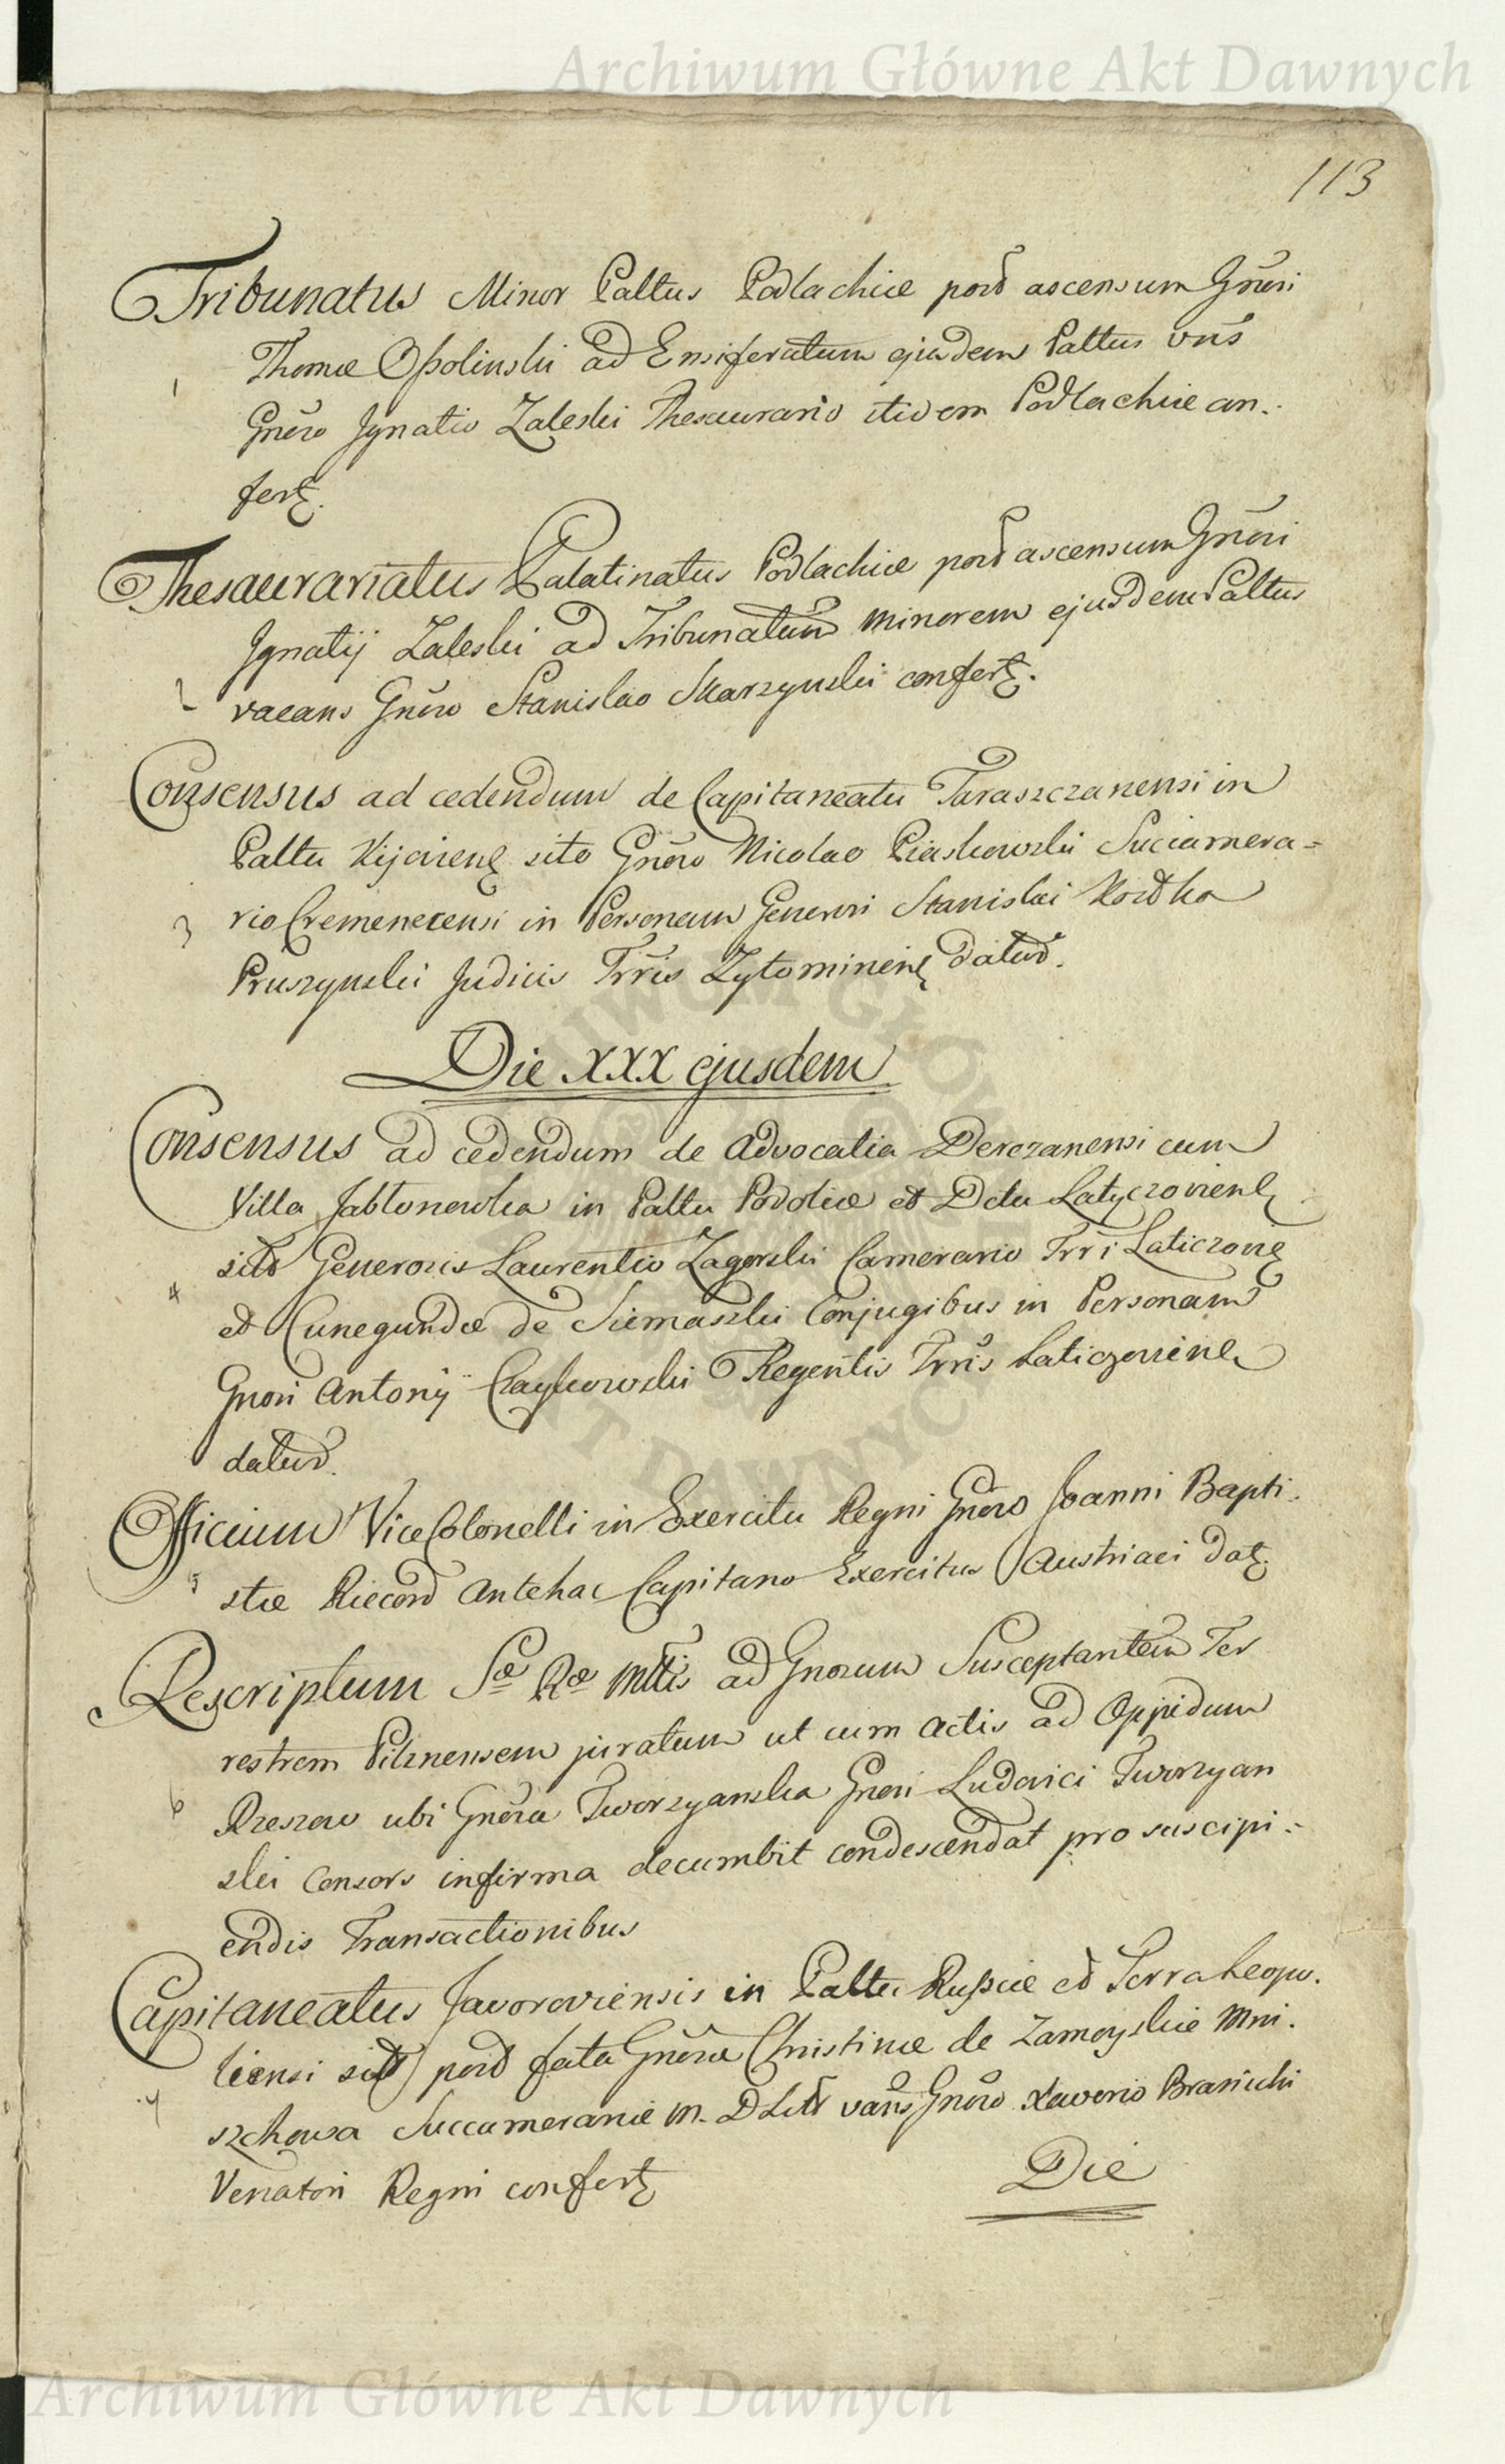 Archiwum Główne Akt Dawnych
113
Tribunatus Minor Paltus Podlachiæ post ascensum Gnri
Thomæ Ossolinski ad Ensiferatum ejusdem Paltus vns
1
Gnoso Ignatio Zaleski Thesaurario itidem Podlachiæ con-
fertę.
Thesaurariatus Palatinatus Podlachiæ post ascensum Gnrsi
Ignatij Zaleski ad Tribunatum minorem ejusdem Paltus
2 vacans Gnoso Stanislao Skarzynski confertę.
Consensus ad cedendum de Capitaneatu Taraszczanensi in
Paltu Kijovienę sito Gnoso Nicolao Piaskowski Succamera=
3 rio Cremenecensi in Personam Generosi Stanislai Kostka
Pruszynski Judicis Trris Zytomirienę datus.
Die XXX ejusdem
Consensus ad cedendum de Advocatia Derczanensi cum
Villa Jabłonowka in Paltu Podoliæ et Dctu Latyczovienę
4 sitis Generosis Laurentio Zagorski Camerario Trri Laticzovię
et Cunegundæ de Siemaszki Conjugibus in Personam
Gnosi Antonij Czaykowski Regentis Trris Laticzovienę
datus.
Officium ViceColonelli in Exercitu Regni Gnoso Joanni Bapti-
5 stæ Riecord Antehac Capitano Exercitus Austriaci datę.
Rescriptum Sæ Ræ Mttis ad Gnosum Susceptantem Ter
restrem Pilznensem juratum ut cum Actis ad Oppidum
6 Rzeszow ubi Gnosa Tworzyanska Gnosi Ludovici Tworzyan
ski Consors infirma decumbit condescendat pro suscipi-
endis Transactionibus
Capitaneatus Javoroviensis in Paltu Russiæ et Terra Leopo-
liensi sits post fata Gnosæ Christinæ de Zamoyskie Mni-
7 szchowa Succamerariæ M. D. Litt vans Gnoso Xaverio Branicki
Venatori Regni confertę
Die
Archiwum Główne Akt Dawnych